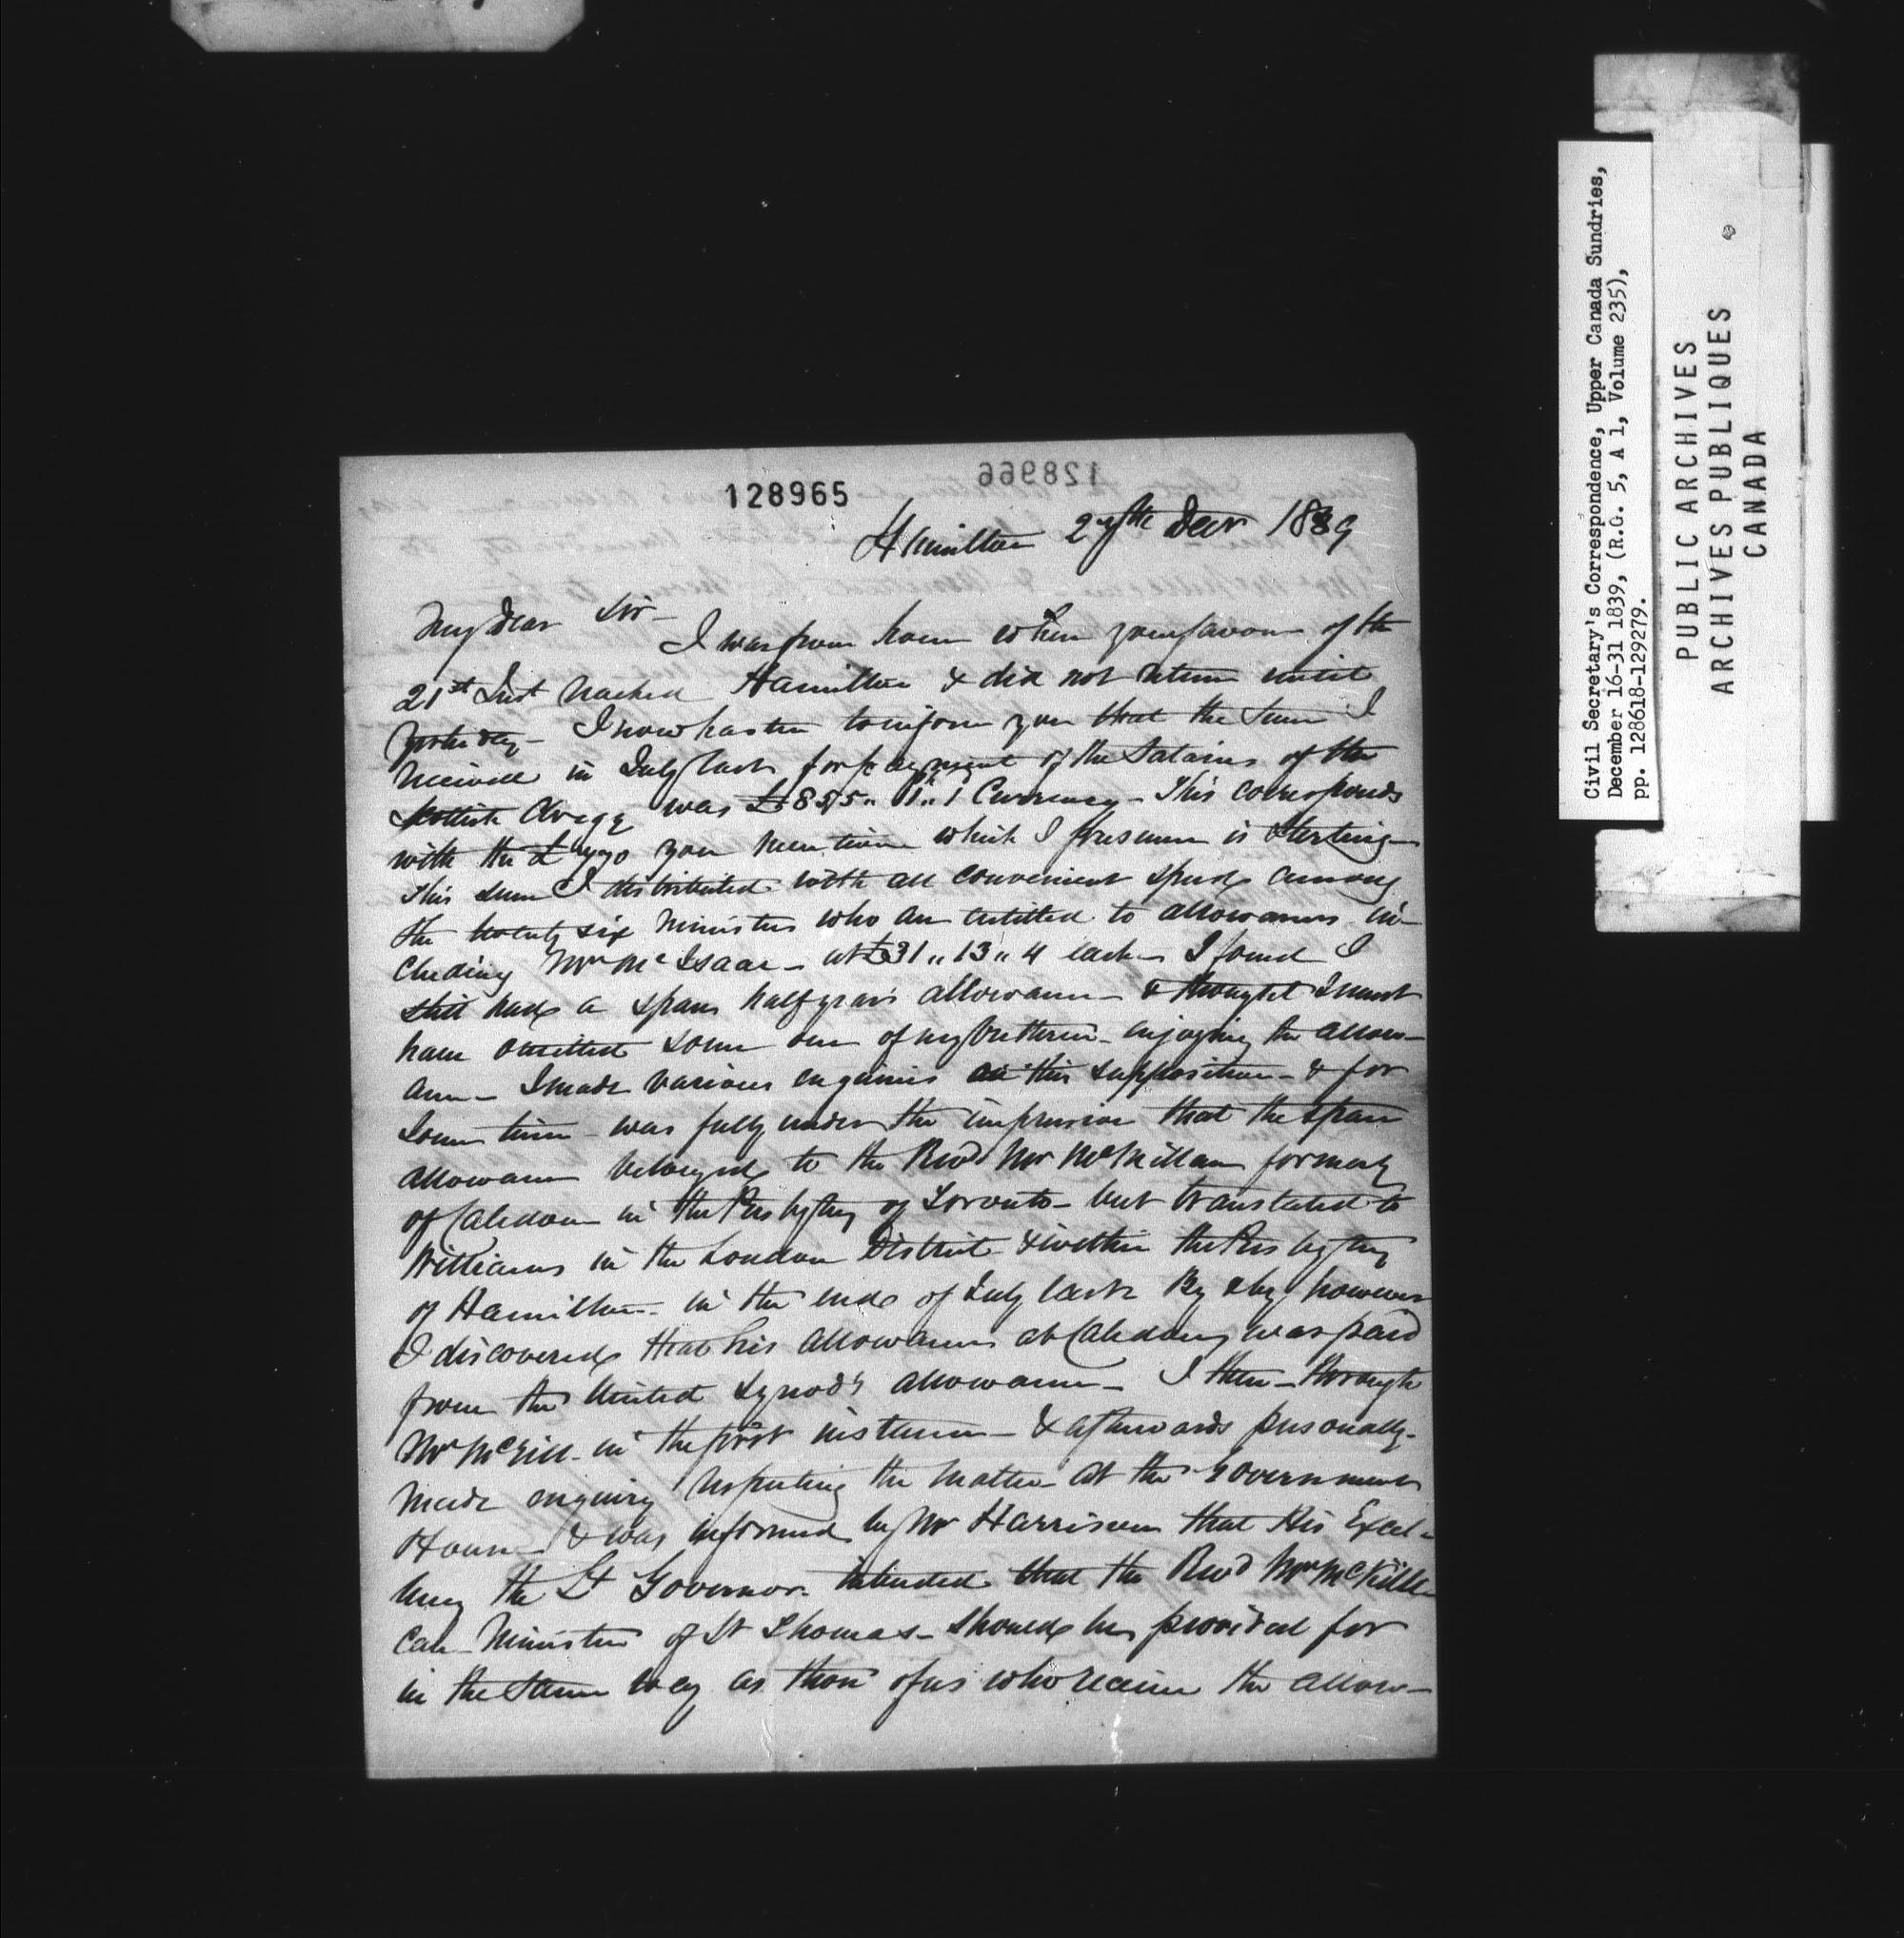 128965
128966
Hamilton 27th Decr 1839
My Dear Sir-
I was from home when your favour of the
21st Inst reached Hamilton & did not return until
yesterday - I now hasten to inform you that the sum I
received in July last for payment of the Salaries of the
Scottish Clergy was £855.. 11.. 1 Currency - This corresponds
with the £770 you mention which I presume is sterling -
This sum I distributed with all convenient speed among
the twenty six ministers who are entitled to allowances in-
cluding Mr McIsaac - at £31 .. 13 .. 4 each - I found I
still had a spare half year's allowance - & thought I must
have omitted some one of my brethren enjoying the allow-
ance - I made various enquiries on this supposition - & for
some time - was fully under the impression that the spare
allowance belonged to the Revd Mr McKillan formerly
of Caledon in the Presbytery of Toronto - but translated to
Williams in the London District & within the Presbytery
of Hamilton - in the end of July last By & by however
I discovered that his allowance at Caledon was paid
from the United Synod's allowance - I then - through
Mr McGill - in the first instance - & afterwards personally -
made enquiry respecting the matter at the Government
House - & was informed by Mr Harrison that His Excel-
lency the Lt Governor intended that the Revd Mr McKilli-
can - Minister of St Thomas - should be provided for
in the same way as those of us who receive the allow-
Civil Secretary's Correspondence, Upper Canada Sundries,
December 16-31 1839, (R.G. 5, A 1, Volume 235),
pp. 128618-129279.
PUBLIC ARCHIVES
ARCHIVES PUBLIQUES
CANADA